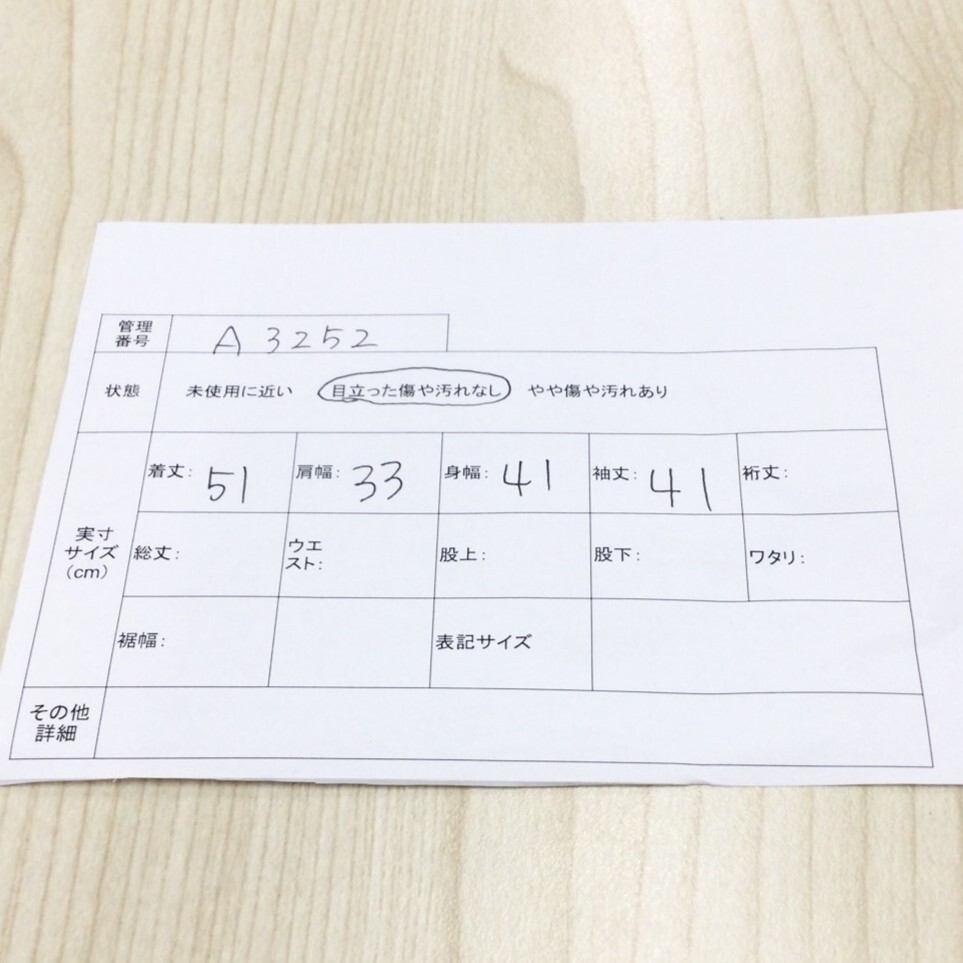 管理
番号
A3252
状態
未使用に近い 目立った傷や汚れなし やや傷や汚れあり
実寸
サイズ
(cm)
着丈: 51 肩幅: 33 身幅: 41 袖丈: 41 裄丈:
総丈: ウエ
スト: 股上: 股下: ワタリ:
裾幅: 表記サイズ
その他
詳細